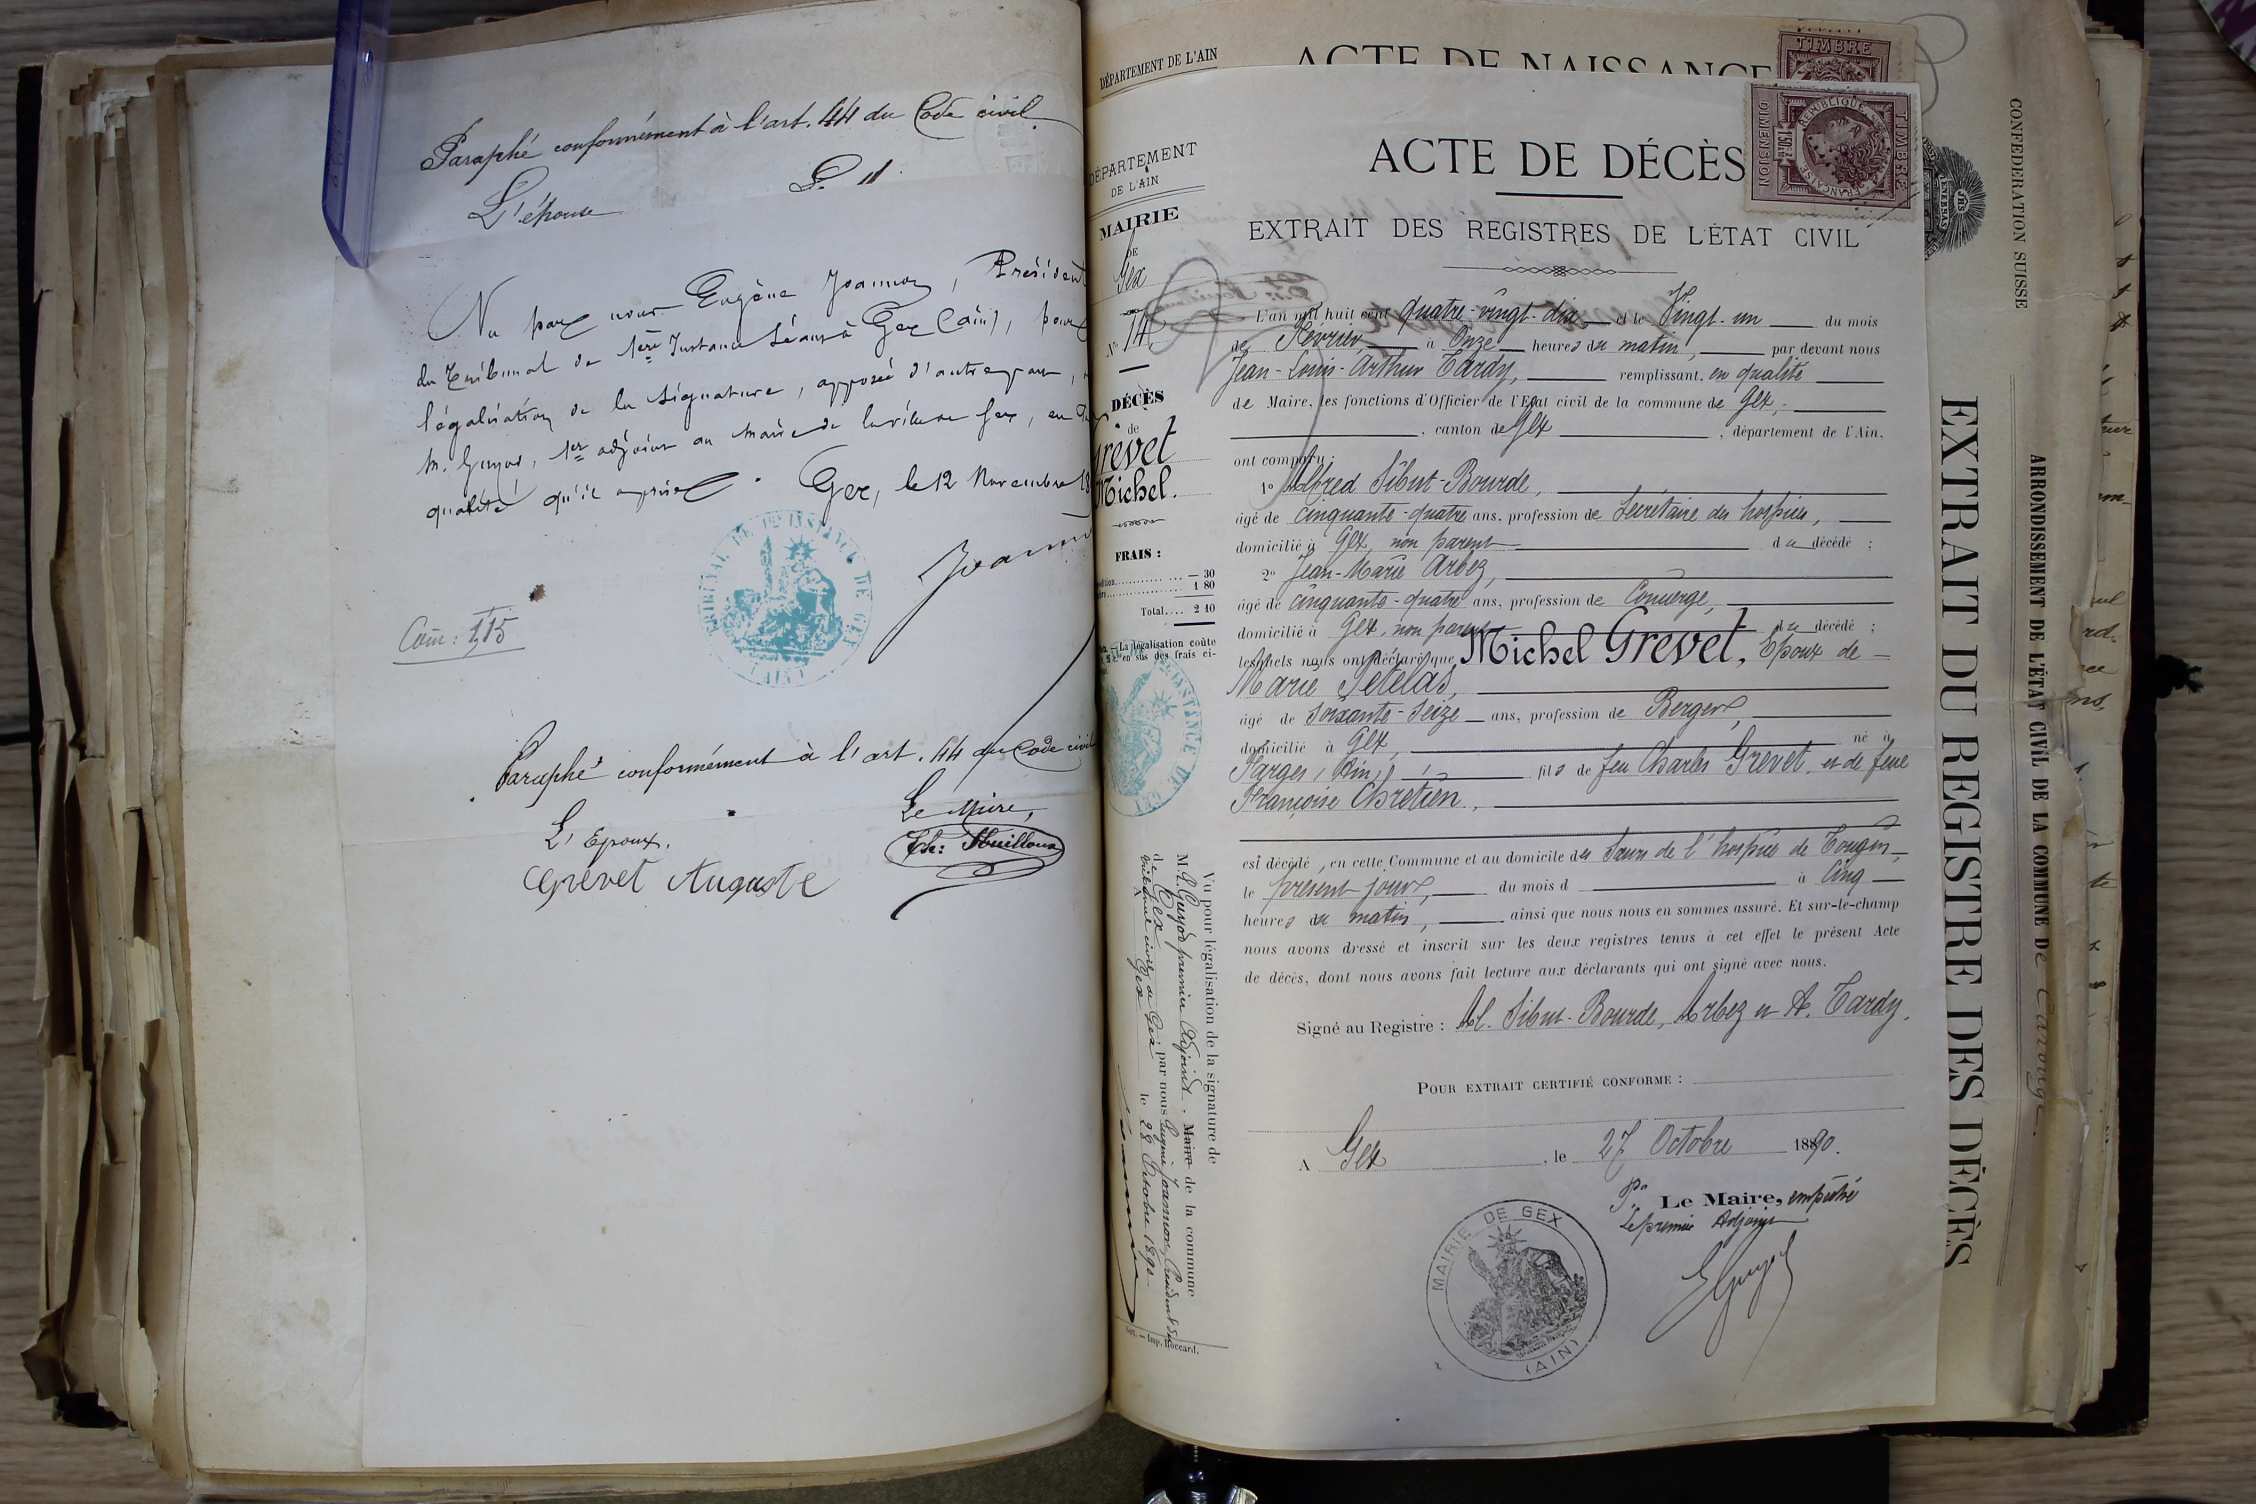 Paraphé conformément à l'art. 44 du Code civil.
L'épouse
Vu par nous Eugène Joannon, Président
du Tribunal de 1ère Instance séant à Gex (Ain), pour
légalisation de la signature, apposée d'autre part,
M. Guyod, 1er adjoint au maire de la ville de Gex, en
qualité qu'il a prise. Gex, le 12 Novembre 18
TRIBUNAL DE 1re INSTANCE DE GEX
(AIN)
Coût: 1,15
Paraphé conformément à l'art. 44 du Code civil
Le Maire,
L'Epoux.
Grevet Auguste
DÉPARTEMENT DE L'AIN
ACTE DE NAISSANCE
TIMBRE
DÉPARTEMENT
DE L'AIN
MAIRIE
DE
Gex
N° 14
DÉCÈS
de
Grevet
Michel.
FRAIS :
— 30
1 80
Total.... 2 10
La légalisation coûte
en sus des frais ci-
ACTE DE DÉCÈS
TIMBRE
RÉPUBLIQUE FRANÇAISE
DIMENSION
EXTRAIT DES REGISTRES DE L'ÉTAT CIVIL
L'an mil huit cent quatre-vingt-dix et le Vingt-un du mois
de Février, à Onze heures du matin, par devant nous
Jean-Louis-Arthur Tardy, remplissant, en qualité
de Maire, les fonctions d'Officier de l'Etat civil de la commune de Gex,
, canton de Gex, département de l'Ain,
ont comparu :
1° Alfred Sibut-Bourde,
âgé de cinquante-quatre ans, profession de Secrétaire des hospices,
domicilié à Gex, non parent du décédé ;
2° Jean-Marie Arbez,
âgé de cinquante-quatre ans, profession de Concierge,
domicilié à Gex, non parent du décédé ;
lesquels nous ont déclaré que Michel Grevet, Epoux de
Marie Pételas,
âgé de soixante-seize ans, profession de Berger,
domicilié à Gex, né à
Farges, (Ain), fils de feu Charles Grevet, et de feue
Françoise Chrétien,
est décédé, en cette Commune et au domicile des Sœurs de l'hospice de Tougin,
le présent jour, du mois d à Cinq
heures du matin, ainsi que nous nous en sommes assuré. Et sur-le-champ
nous avons dressé et inscrit sur les deux registres tenus à cet effet le présent Acte
de décès, dont nous avons fait lecture aux déclarants qui ont signé avec nous.
Signé au Registre : Al. Sibut-Bourde, Arbez et A. Tardy.
POUR EXTRAIT CERTIFIÉ CONFORME :
A Gex, le 27 Octobre 1890.
Pr Le Maire, empêché
Le premier Adjoint
EGuyod
MAIRIE DE GEX
(AIN)
Vu pour légalisation de la signature de
M. E. Guyod premier Adjoint, Maire de la commune
de Gex par nous Eugène Joannon, Président du
Tribunal civil de Gex
A Gex le 28 Octobre 1890
Gex. — Imp. Boccard.
EXTRAIT DU REGISTRE DES DÉCÈS
CONFÉDÉRATION SUISSE
ARRONDISSEMENT DE L'ÉTAT CIVIL DE LA COMMUNE DE Carouge.